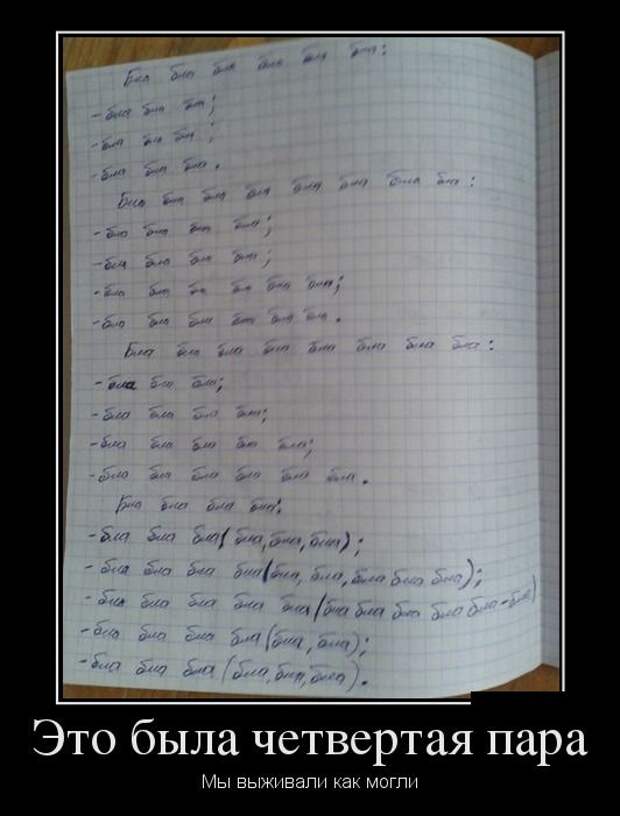 Бла бла бла бла бла бла:
- бла бла бла;
- бла бла бла;
- бла бла бла.
Бла бла бла бла бла бла бла бла:
- бла бла бла бла;
- бла бла бла бла;
- бла бла бла бла бла бла;
- бла бла бла бла бла бла.
Бла бла бла бла бла бла бла бла:
- бла бла бла;
- бла бла бла бла;
- бла бла бла бла бла;
- бла бла бла бла бла бла.
Бла бла бла бла:
- бла бла бла(бла, бла, бла);
- бла бла бла бла(бла, бла, бла бла бла);
- бла бла бла бла бла(бла бла бла бла бла-бла)
- бла бла бла бла(бла, бла);
- бла бла бла(бла, бла, бла).
Это была четвертая пара
Мы выживали как могли